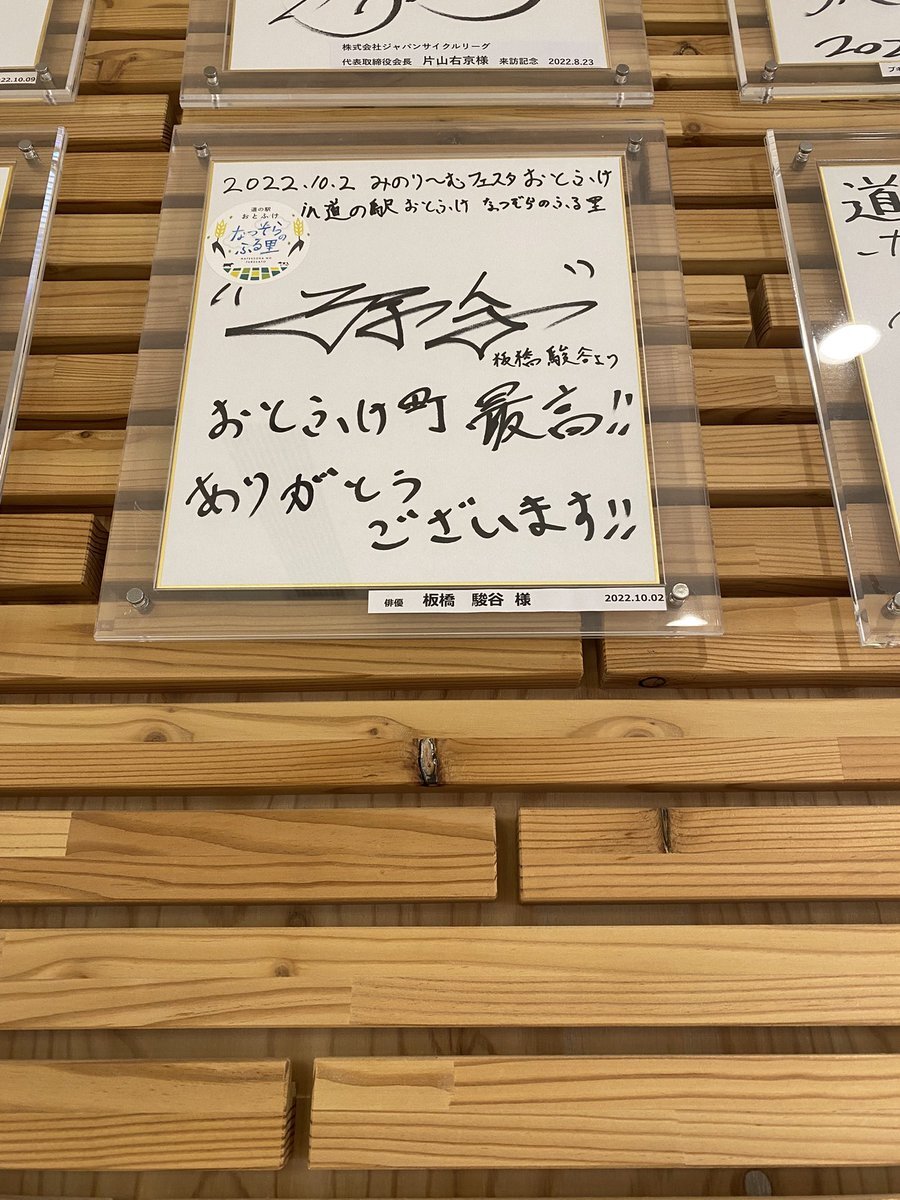 2022.10.09
株式会社ジャパンサイクルリーグ
代表取締役会長 片山右京様 来訪記念 2022.8.23
202
2022.10.2 みのり〜むフェスタおとふけ
in道の駅 おとふけ なつぞらのふる里
道の駅
おとふけ
なつぞらの
ふる里
NATSUZORA NO
FURUSATO
板橋 駿谷より
おとふけ町 最高!!
ありがとう
ございます!!
俳優 板橋 駿谷 様 2022.10.02
道